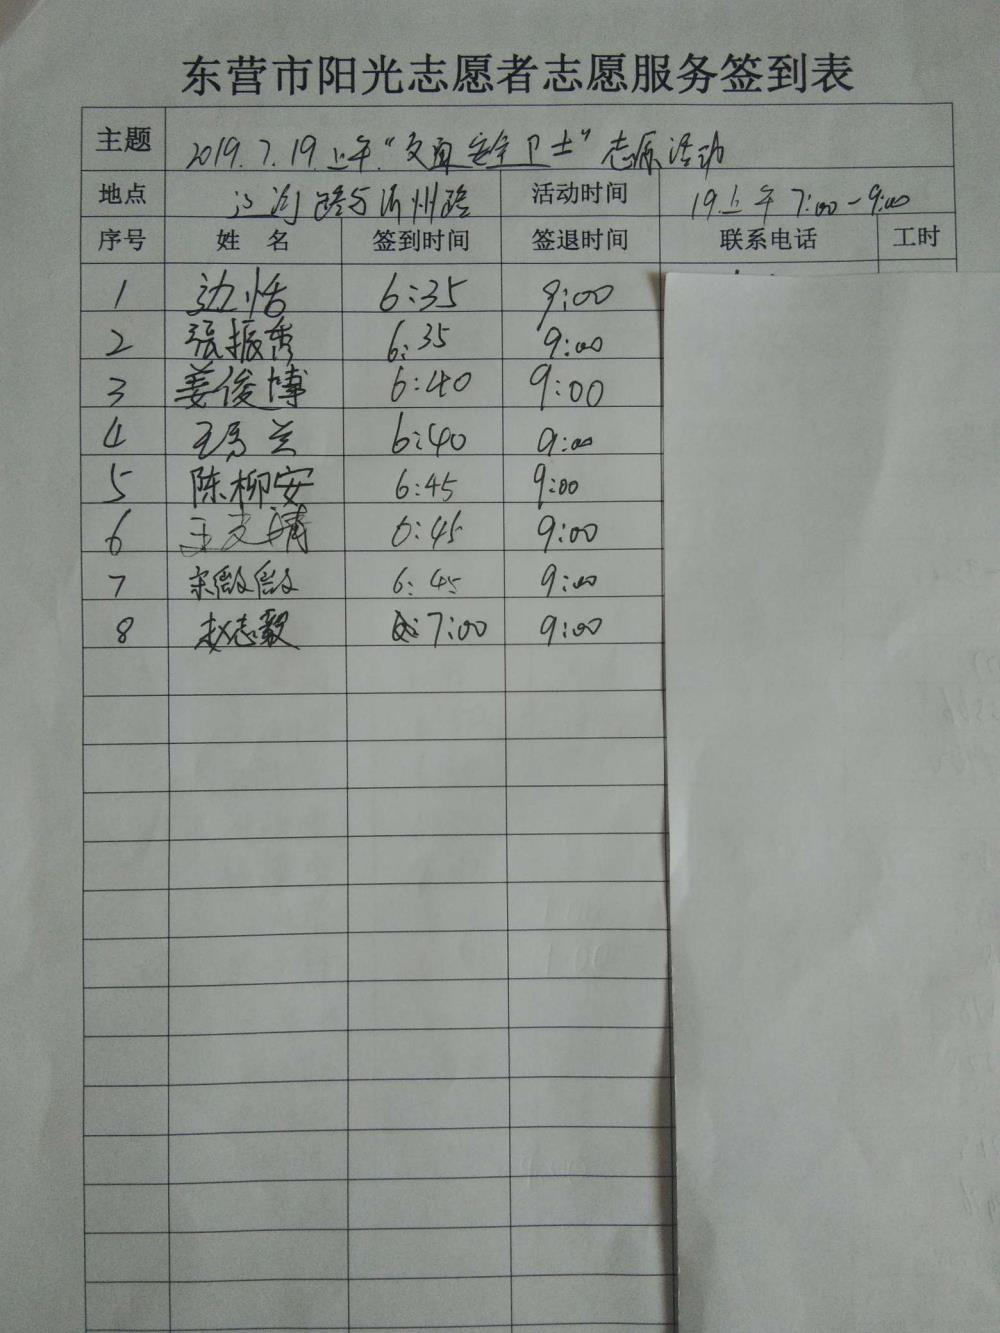 东营市阳光志愿者志愿服务签到表
主题 2019.7.19.上午“交通安全卫士”志愿活动
地点 路与沂州路 活动时间 19上午7:00-9:00
序号 姓 名 签到时间 签退时间 联系电话 工时
1 边恬 6:35 9:00
2 张振秀 6:35 9:00
3 姜俊博 6:40 9:00
4 王秀兰 6:40 9:00
5 陈柳安 6:45 9:00
6 王文靖 6:45 9:00
7 宋微微 6:45 9:00
8 赵志毅 7:00 9:00